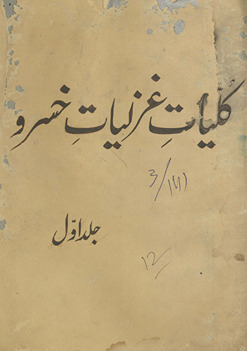 کلیاتِ غزلیاتِ خسرو
جلد اوّل
12